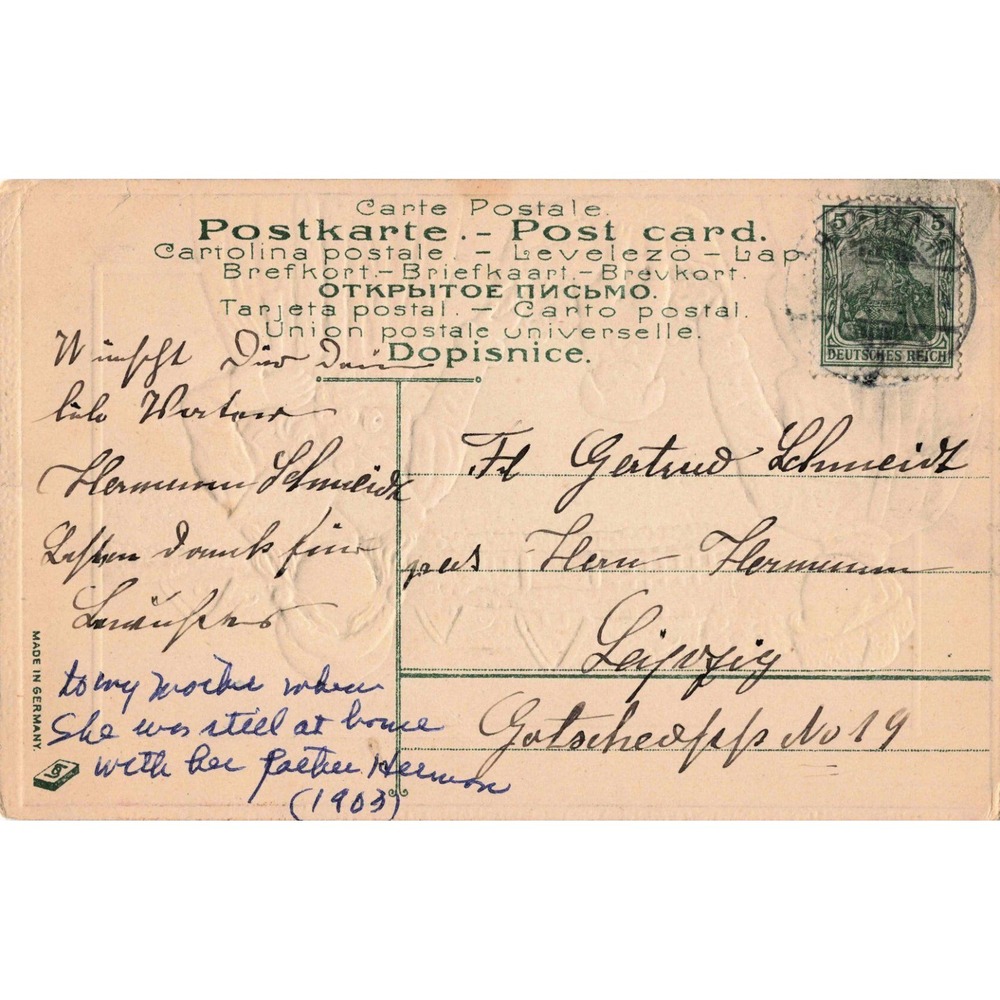 Carte Postale.
Postkarte. - Post card.
Cartolina postale. - Levelezö - Lap
Brefkort. - Briefkaart. - Brevkort.
ОТКРЫТОЕ ПИСЬМО.
Tarjeta postal. - Carto postal.
Union postale universelle.
Dopisnice.
5 5
DEUTSCHES REICH
Wünscht Dir Dein
Hermann Schmeidt
Dank für
Frl Gertrud Schmeidt
Herrn Hermann
Leipzig
No 19
to my mother when
she was still at home
with her father Herman
(1903)
MADE IN GERMANY.